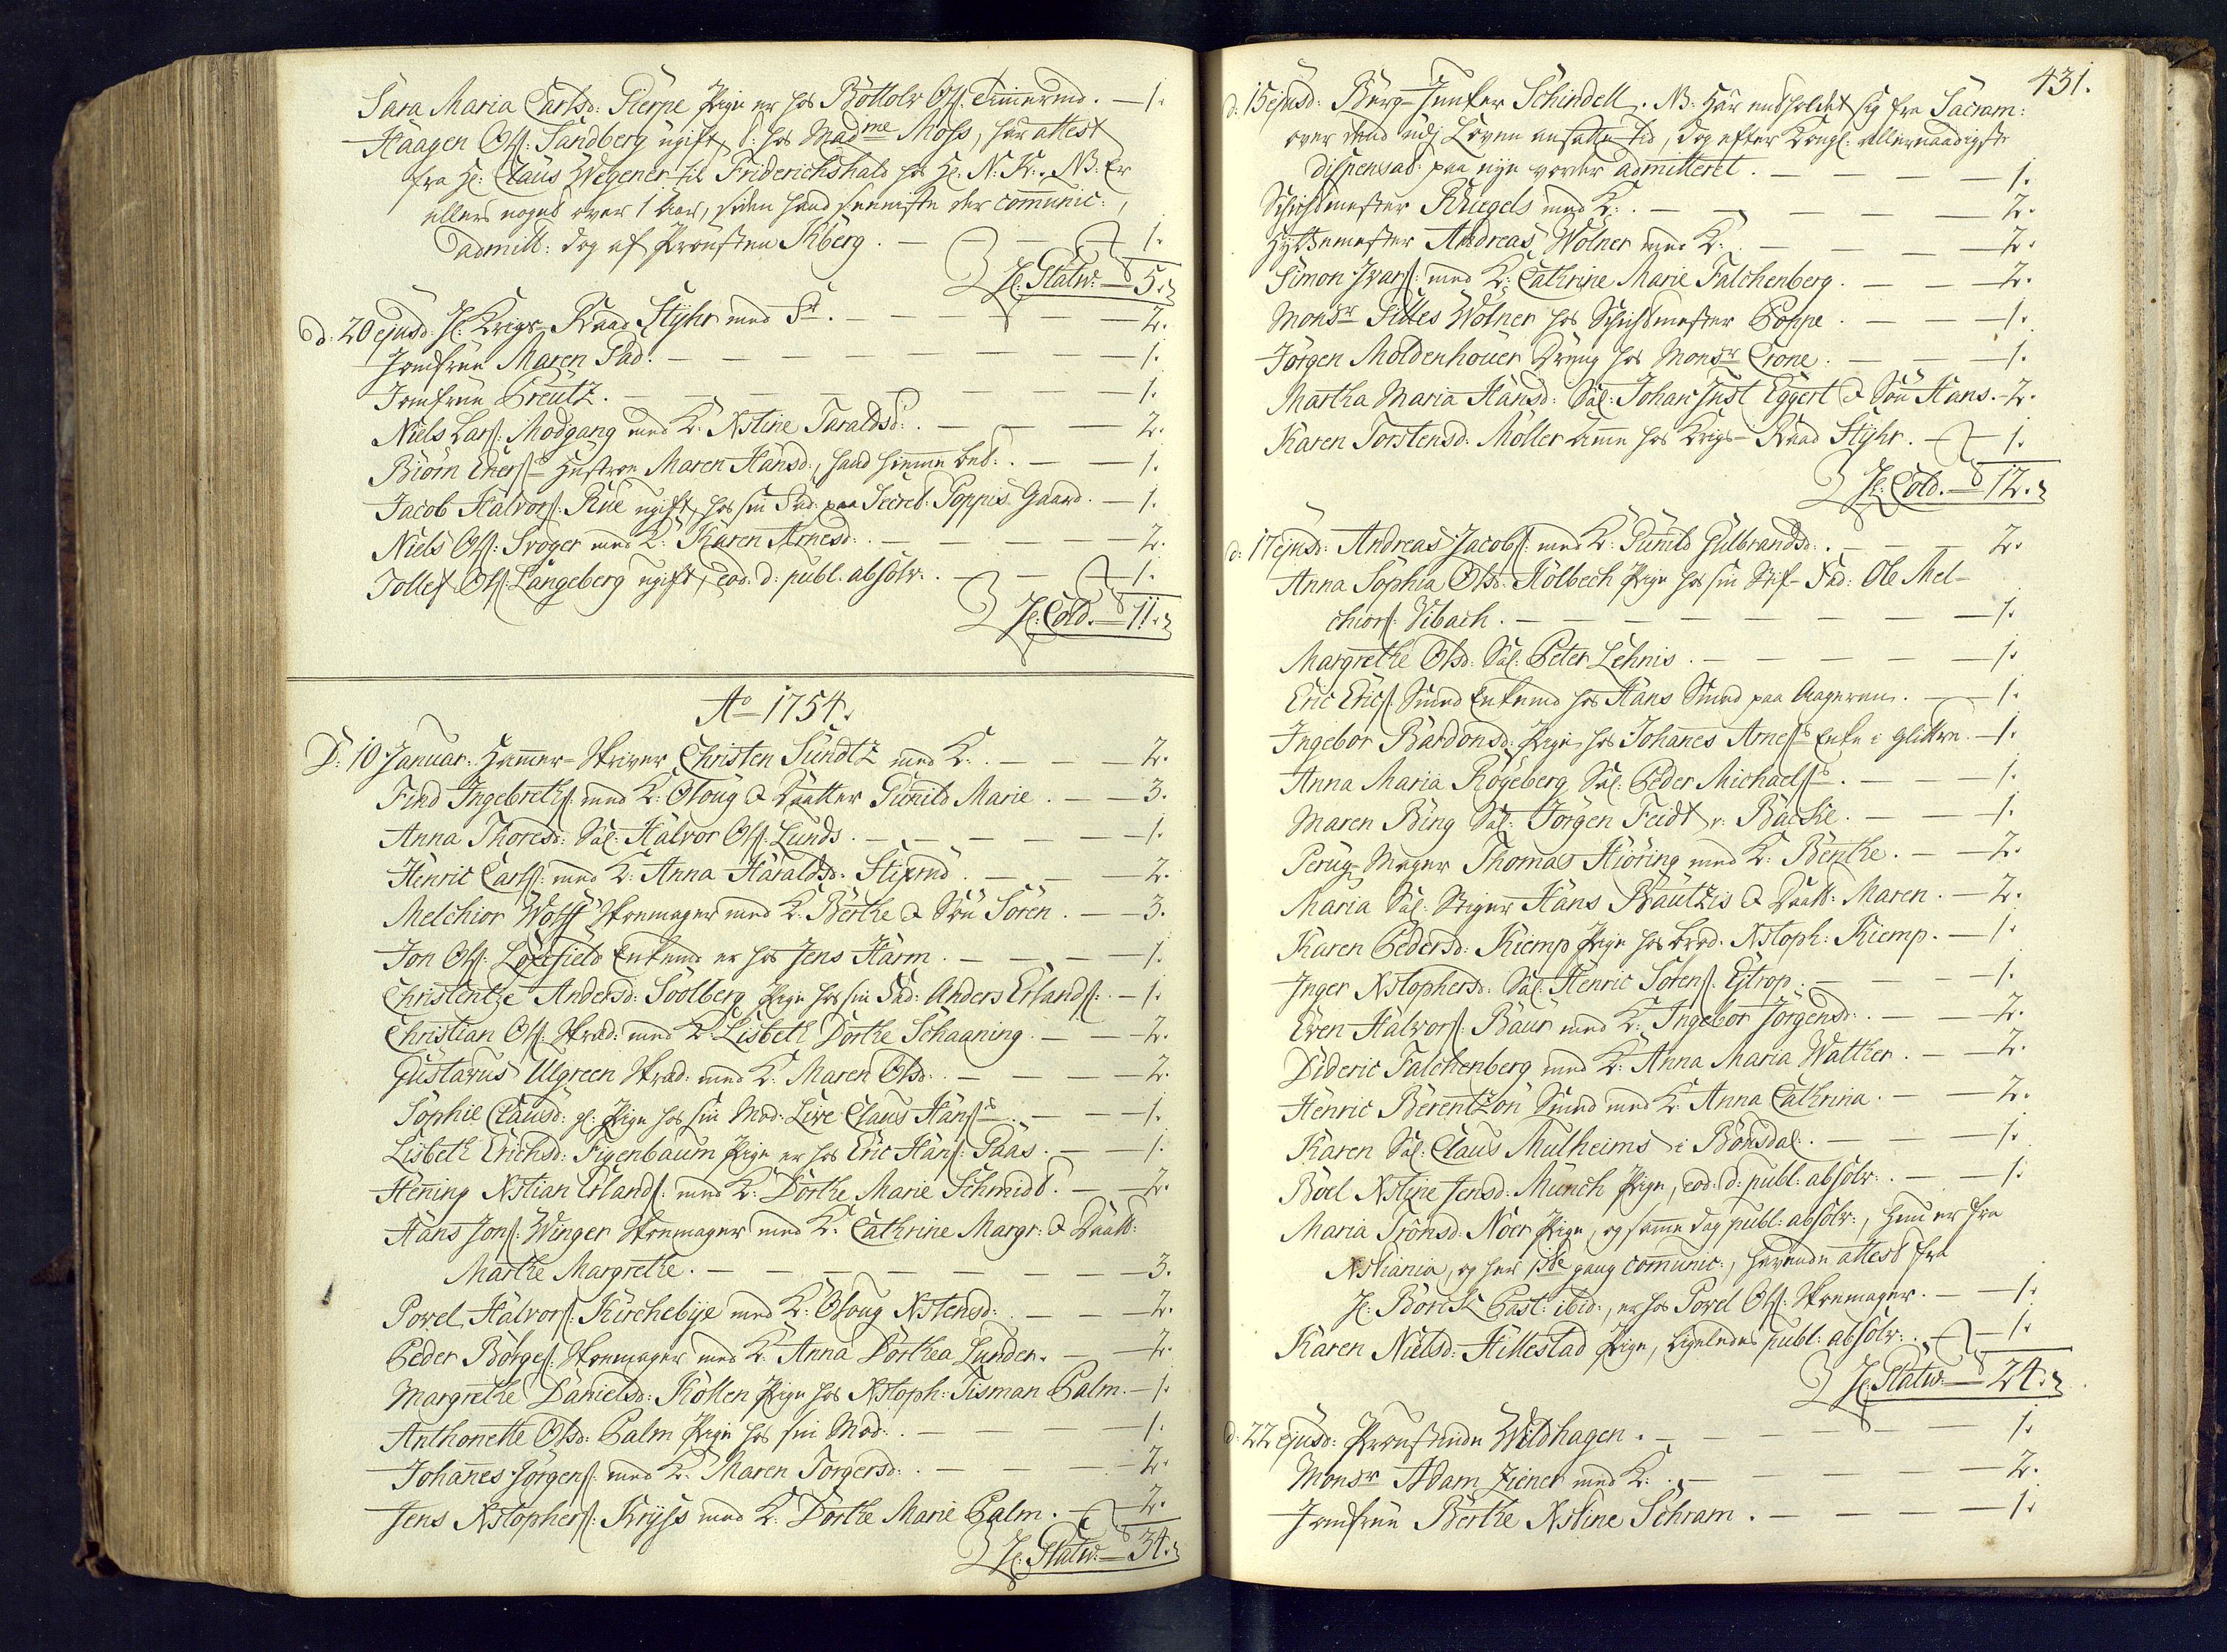 Sara Maria Carlsd: Gierpe Pige er hos Bottolv Ols: Timermd. — 1.
Haagen Ols: Sandberg ugift, t: hos Madme Moss, har attest
fra Hr: Claus Wegener til Friderichshald hos Hr: N: K:. NB: Er
ellers noget over 1 Aar, siden hand seeneste der comunic:,
admitt: dog af Provsten Kberg. — 1.
H: Statw: — 5.
d: 20 ejusd: H: Krigs-Raad Stÿhr med Fr. — 2.
Jomfrue Maren Gad: — 1.
Jomfrue Creutz. — 1.
Niels Lars: Modgang med K: Xstine Taraldsd: — 2.
Biörn Eners: Hustroe Maren Hansd:, hand hiemme bet:. — 1.
Jacob Halvors: Rue ugift, hos sin Fad: paa Secret: Poppis Gaard. — 1.
Niels Ols: Svoger med K: Karen Arnesd: — 2.
Tollef Ols: Langeberg ugift, eod: d: publ: absolv:. — 1.
H: Cold. — 11.
Ao 1754.
D: 10 Januar: Hammer-Skriver Christen Sundtz med K:. — 2.
Find Ingebreths: med K: Oloug & Daatter Gunild Marie. — 3.
Anna Thoresd: Sal: Halvor Ols: Lunds. — 1.
Henric Carls: med K: Anna Haraldsd: Stixrud. — 2.
Melchior Wolff Skoemager med K: Berthe & Søn Sören. — 3.
Jon Ols: Löxefield Enkemd er hos Jens Harm. — 1.
Christentze Andersd: Soolberg Pige hos sin Fad: Anders Erlands:. — 1.
Christian Ols: Skræd: med K: Lisbeth Dorthe Schaaning. — 2.
Gustavus Ulgreen Skræd: med K: Maren Olsd:. — 2.
Sophie Clausd: gl: Pige hos sin Mod: Live Claus Hans: — 1.
Lisbeth Erichsd: Figenbaum Pige er hos Eric Hans: Gaas. — 1.
Hening Xstian Erlands: med K: Dorthe Marie Schmidt. — 2.
Hans Jons: Winger Skoemager med K: Cathrine Margr: & Daatt:
Marthe Margrethe. — 3.
Povel Halvors: Kirchebÿe med K: Oloug Xstensd: — 2.
Peder Börges: Skoemager med K: Anna Dorthea Lunder. — 2.
Margrethe Danielsd: Kollen Pige hos Xstoph: Tisman Palm. — 1.
Anthonette Olsd: Palm Pige hos sin Mod:. — 1.
Johanes Jörgens: med K: Maren Torgersd:. — 2.
Jens Xstophers: Krÿss med K: Dorthe Marie Palm. — 2.
H: Statw: — 34.
431.
d: 15 ejusd: Berg-Junker Schindell. NB: Har entholdet sig fra Sacram:
over dend udj Loven ansatte tid, dog efter Kongl: allernaadigste
dispensat: paa nye vorder admitteret. — 1.
Schichtmester Kriegels med K:. — 2.
Hyttemester Andreas Wolner med K:. — 2.
Simon Ivars: med K: Cathrine Marie Falchenberg. — 2.
Monsr Gilles Wolner hos Schichtmester Poppe. — 1.
Jörgen Moldenhouer Dreng hos Monsr Crone. — 1.
Martha Maria Hansd: Sal: Johan Just Eggert & Søn Hans. — 2.
Karen Torstensd: Möller Amme hos Krigs-Raad Stÿhr. — 1.
H: Cold. — 12.
d: 17 ejusd: Andreas Jacobs: med K: Gunild Gulbrandsd:. — 2.
Anna Sophia Olsd: Holbech Pige hos sin Stif-Fad: Ole Mel-
chiors: Vibach. — 1.
Margrethe Olsd: Sal: Peter Lehnis. — 1.
Eric Erics: Smed Enkemd hos Hans Smed paa Aageren. — 1.
Ingebor Bardonsd: Pige hos Johanes Arnes: Enke i Glittre. — 1.
Anna Maria Rögeberg Sal: Peder Michaels:. — 1.
Maren Bing Sal: Jörgen Feidt v: Backe. — 1.
Peruq-Mager Thomas Hiöring med K: Benthe. — 2.
Maria Sal: Stiger Hans Bautzis & Daatt: Maren. — 2.
Karen Pedersd: Kiemp Pige hos brod: Xstoph: Kiemp. — 1.
Inger Xstophersd: Sal: Henric Sorens: Estrop. — 1.
Even Halvors: Baur med K: Ingebor Jörgensd:. — 2.
Dideric Falchenberg med K: Anna Maria Walther. — 2.
Henric Berentzön Smed med K: Anna Cathrina. — 2.
Karen Sal: Claus Mulheims i Bondsdal:. — 1.
Boel Xstine Jensd: Münch Pige, eod: d: publ: absolv:. — 1.
Maria Tronsd: Noer Pige, og samme dag publ: absolv:, hun er fra
Xstiania, og her 1ste gang comunic:, havende attest fra
H: Borch Past: ibid:, er hos Povel Ols: Skoemager. — 1.
Karen Nielsd: Hillestad Pige, ligeledes publ: absolv:. — 1.
H: Statw: — 24.
d: 22 ejusd: Provstinde Wildhagen. — 1.
Monsr Adam Ziener med K:. — 2.
Jomfrue Berthe Xstine Schram. — 1.